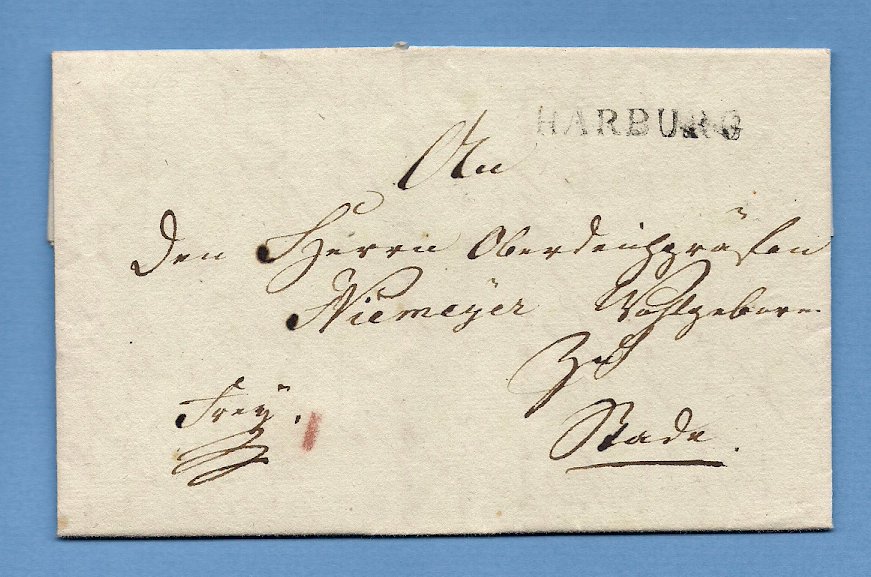 HARBURG
An
den Herrn Oberdeichgräfen
Niemeÿer Wohlgeboren
zu
Stade.
Freÿ.